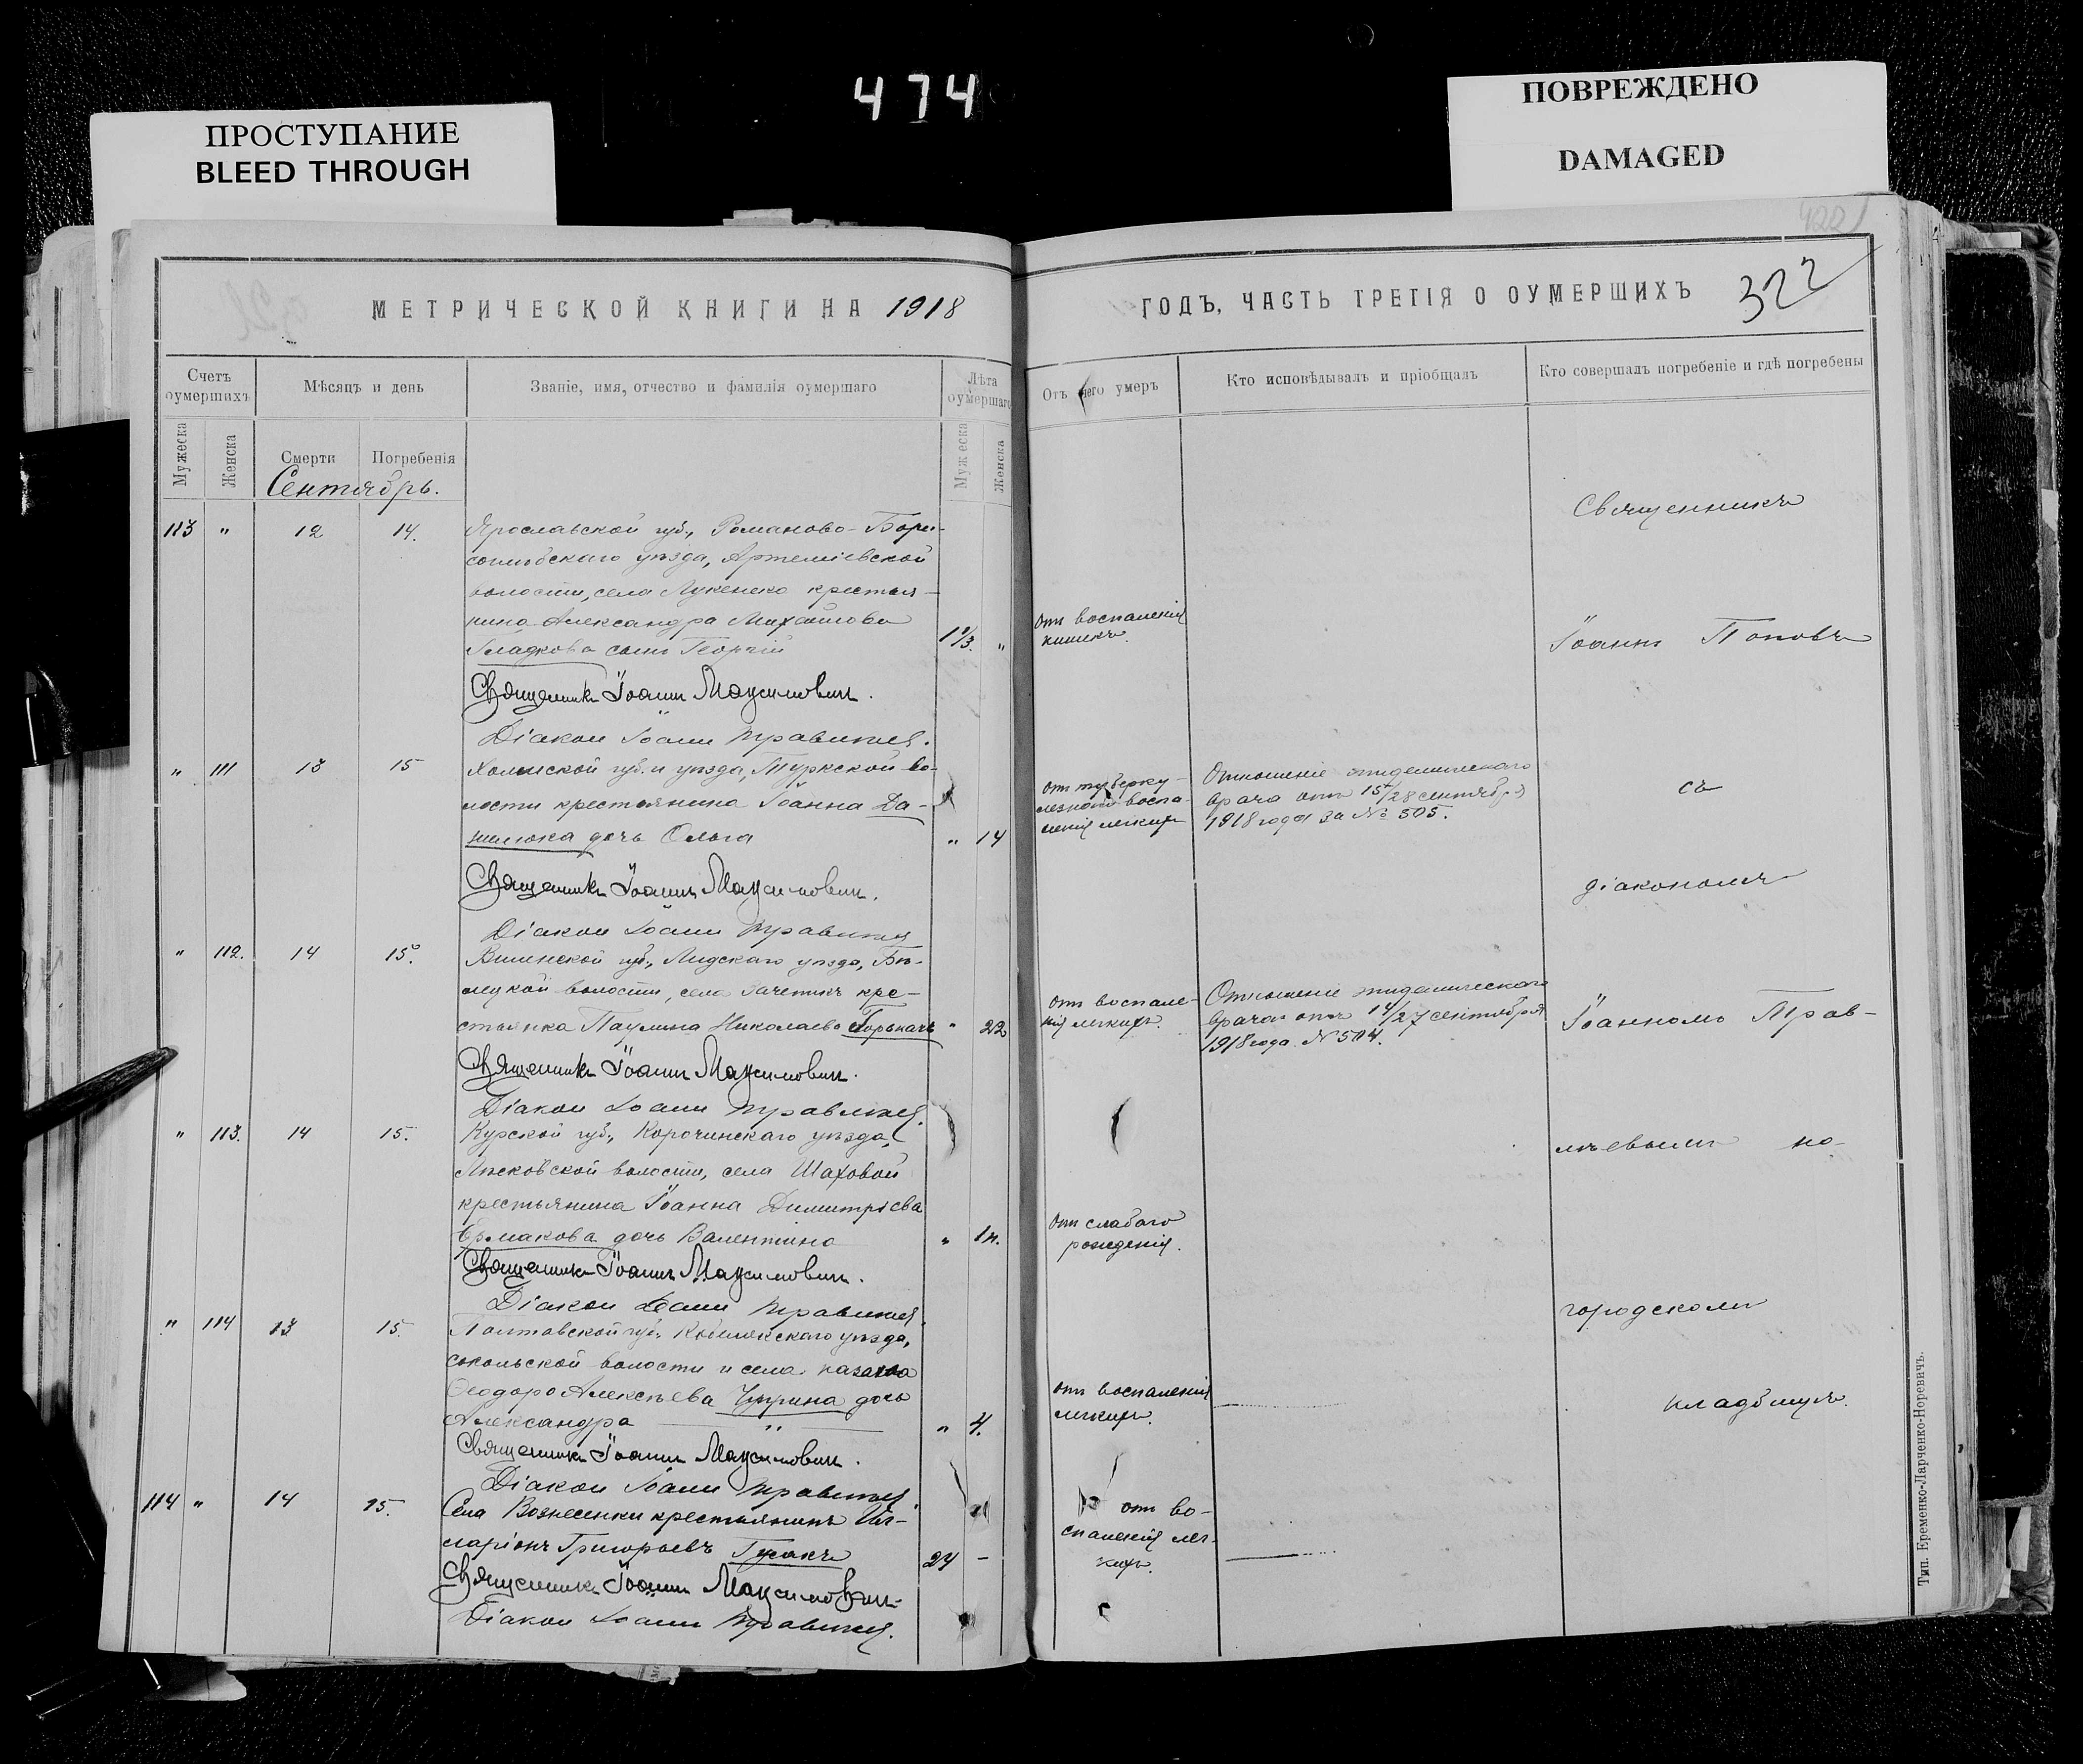 474
ПРОСТУПАНИЕ
BLEED THROUGH
ПОВРЕЖДЕНО
DAMAGED
422
322
МЕТРИЧЕСКОЙ КНИГИ НА 1918
ГОДЪ, ЧАСТЬ ТРЕТІЯ О ОУМЕРШИХЪ
Счетъ оумершихъ
Мѣсяцъ и день
Званіе, имя, отчество и фамилія оумершаго
Лѣта оумершаго
Отъ чего умеръ
Кто исповѣдывалъ и пріобщалъ
Кто совершалъ погребеніе и гдѣ погребены
Мужеска
Женска
Смерти
Погребенія
Мужеска
Женска
Сентябрь.
113 " 12 14.
Ярославской губ., Романово-Бори-
соглѣбскаго уѣзда, Артеміевской
волости, села крестья-
нина Александра Михайлова
Гладкова сынъ Георгій
1 1/3. "
отъ воспаленія
кишекъ.
Священникъ Іоаннъ Максимовичъ.
Діаконъ Іоаннъ
" 111 13 15
Холмской губ. и уѣзда, Туркской во-
лости крестьянина Іоанна Да-
нилюка дочь Ольга
" 14
отъ туберку-
лезнаго воспа-
ленія легкихъ
Отношеніе эпидемическаго
врача отъ 15/28 сентября
1918 года за № 505.
Священникъ Іоаннъ Максимовичъ.
Діаконъ Іоаннъ
" 112. 14 15.
Виленской губ., Лидскаго уѣзда,
волости, села кре-
стьянка Паулина Николаева
" 22
отъ воспале-
нія легкихъ.
Отношеніе эпидемическаго
врача отъ 14/27 сентября
1918 года № 504.
Священникъ Іоаннъ Максимовичъ.
Діаконъ Іоаннъ
" 113. 14 15.
Курской губ., Корочинскаго уѣзда,
волости, села Шаховой
крестьянина Іоанна Димитріева
Ермакова дочь Валентина
" 1н.
отъ слабаго
рожденія.
Священникъ Іоаннъ Максимовичъ.
Діаконъ Іоаннъ
" 114 13 15.
Полтавской губ. Кобелякскаго уѣзда,
сокольской волости и села казака
Ѳеодора Алексѣева дочь
Александра
" 4.
отъ воспаленія
легкихъ.
Священникъ Іоаннъ Максимовичъ.
Діаконъ Іоаннъ
114 " 14 15.
Села Вознесенки крестьянинъ Ил-
ларіонъ Григорьевъ Гусакъ
24 -
отъ во-
спаленія лег-
кихъ.
Священникъ Іоаннъ Максимовичъ
Діаконъ Іоаннъ
Священникъ
Іоаннъ Поповъ
съ
діакономъ
Іоанномъ Трав-
на
городскомъ
кладбищѣ.
Тип. Еременко-Ларченко-Норевичъ.